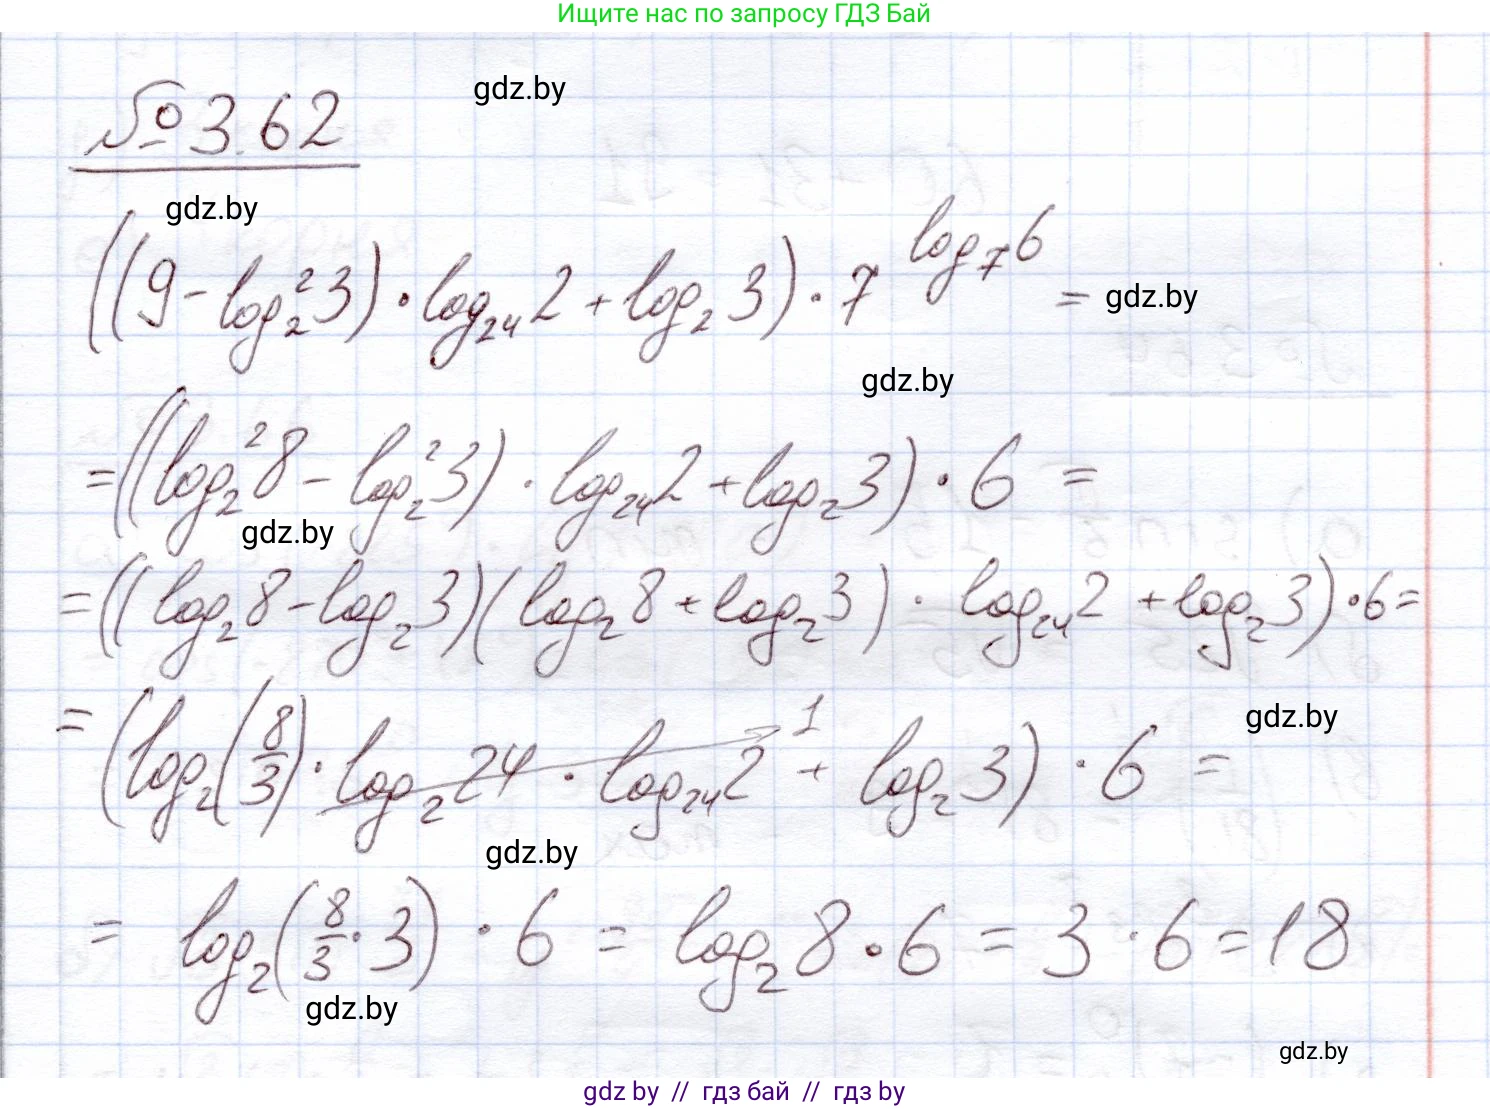 Ищите нас по запросу ГДЗ Бай
gdz.by
№ 3.62
gdz.by
((9 - log₂² 3) · log₂₄ 2 + log₂ 3) · 7^(log₇ 6) =
gdz.by
gdz.by
= ((log₂² 8 - log₂² 3) · log₂₄ 2 + log₂ 3) · 6 =
gdz.by
= ((log₂ 8 - log₂ 3)(log₂ 8 + log₂ 3) · log₂₄ 2 + log₂ 3) · 6 =
gdz.by
= (log₂(8/3) · log₂ 24 · log₂₄ 2 1 + log₂ 3) · 6 =
gdz.by
= log₂(8/3 · 3) · 6 = log₂ 8 · 6 = 3 · 6 = 18
gdz.by
gdz.by
gdz by // гдз бай // гдз by